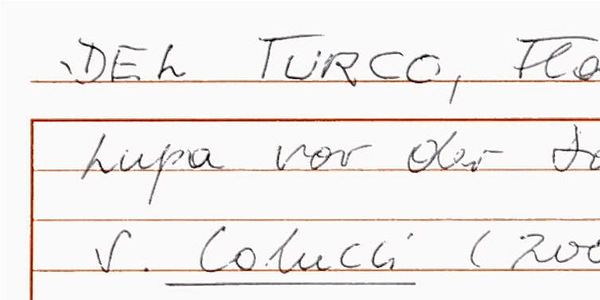 DEL TURCO, Flo
Lupa vor der
v. Colucci (200